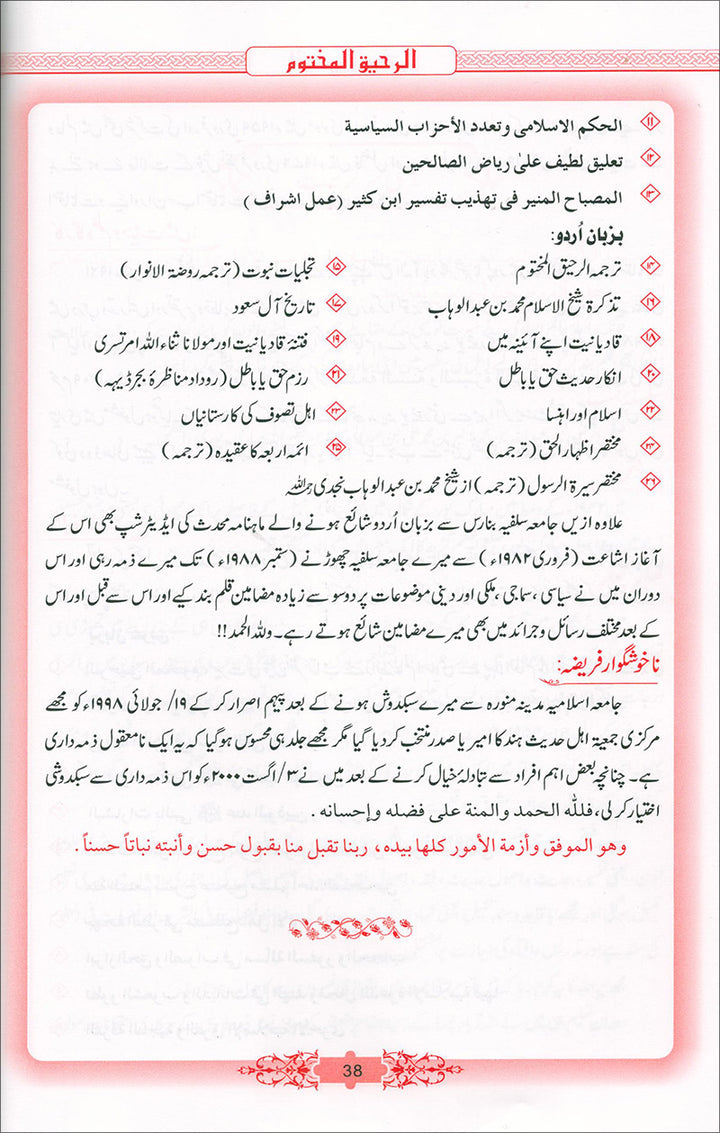 الرحیق المختوم
۱۱ الحکم الاسلامی وتعدد الأحزاب السیاسیة
۱۲ تعلیق لطیف علیٰ ریاض الصالحین
۱۳ المصباح المنیر فی تهذیب تفسیر ابن کثیر (عمل اشراف)
بزبان اُردو:
۱۴ ترجمہ الرحیق المختوم ۱۵ تجلیات نبوت (ترجمہ روضۃ الانوار)
۱۶ تذکرۃ شیخ الاسلام محمد بن عبدالوہاب ۱۷ تاریخ آل سعود
۱۸ قادیانیت اپنے آئینہ میں ۱۹ فتنۂ قادیانیت اور مولانا ثناء اللہ امرتسری
۲۰ انکار حدیث حق یا باطل ۲۱ رزم حق یا باطل (روداد مناظرۂ بجرڈیہہ)
۲۲ اسلام اور اہنسا ۲۳ اہل تصوف کی کارستانیاں
۲۴ مختصر اظہار الحق (ترجمہ) ۲۵ ائمہ اربعہ کا عقیدہ (ترجمہ)
۲۶ مختصر سیرۃ الرسول (ترجمہ) از شیخ محمد بن عبدالوہاب نجدی رحمہ اللہ
علاوہ ازیں جامعہ سلفیہ بنارس سے بزبان اُردو شائع ہونے والے ماہنامہ محدث کی ایڈیٹر شپ بھی اس کے
آغاز اشاعت (فروری ۱۹۸۲ء) سے میرے جامعہ سلفیہ چھوڑنے (ستمبر ۱۹۸۸ء) تک میرے ذمہ رہی اور اس
دوران میں نے سیاسی، سماجی، ملکی اور دینی موضوعات پر دو سو سے زیادہ مضامین قلم بند کیے اور اس سے قبل اور اس
کے بعد مختلف رسائل و جرائد میں بھی میرے مضامین شائع ہوتے رہے۔ وللہ الحمد!!
ناخوشگوار فریضہ:
جامعہ اسلامیہ مدینہ منورہ سے میرے سبکدوش ہونے کے بعد پیہم اصرار کر کے ۱۹/ جولائی ۱۹۹۸ء کو مجھے
مرکزی جمعیۃ اہل حدیث ہند کا امیر یا صدر منتخب کردیا گیا مگر مجھے جلد ہی محسوس ہوگیا کہ یہ ایک نامعقول ذمہ داری
ہے۔ چنانچہ بعض اہم افراد سے تبادلۂ خیال کرنے کے بعد میں نے ۳/ اگست ۲۰۰۰ء کو اس ذمہ داری سے سبکدوشی
اختیار کر لی، فللہ الحمد والمنة علی فضله وإحسانه .
وهو الموفق وأزمة الأمور كلها بيده ، ربنا تقبل منا بقبول حسن وأنبته نباتاً حسناً .
38